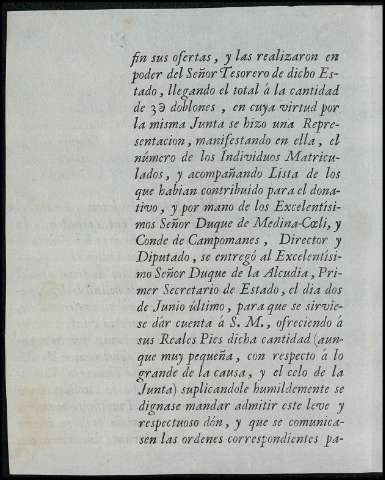 fin sus ofertas, y las realizaron en
poder del Señor Tesorero de dicho Es-
tado, llegando el total á la cantidad
de 3Ə doblones, en cuya virtud por
la misma Junta se hizo una Repre-
sentacion, manifestando en ella, el
número de los Individuos Matricu-
lados, y acompañando Lista de los
que habian contribuido para el dona-
tivo, y por mano de los Excelentísi-
mos Señor Duque de Medina-Cœli, y
Conde de Campomanes, Director y
Diputado, se entregó al Excelentísi-
mo Señor Duque de la Alcudia, Pri-
mer Secretario de Estado, el dia dos
de Junio último, para que se sirvie-
se dár cuenta á S. M., ofreciendo á
sus Reales Pies dicha cantidad (aun-
que muy pequeña, con respecto á lo
grande de la causa, y el celo de la
Junta) suplicandole humildemente se
dignase mandar admitir este leve y
respectuoso dón, y que se comunica-
sen las ordenes correspondientes pa-